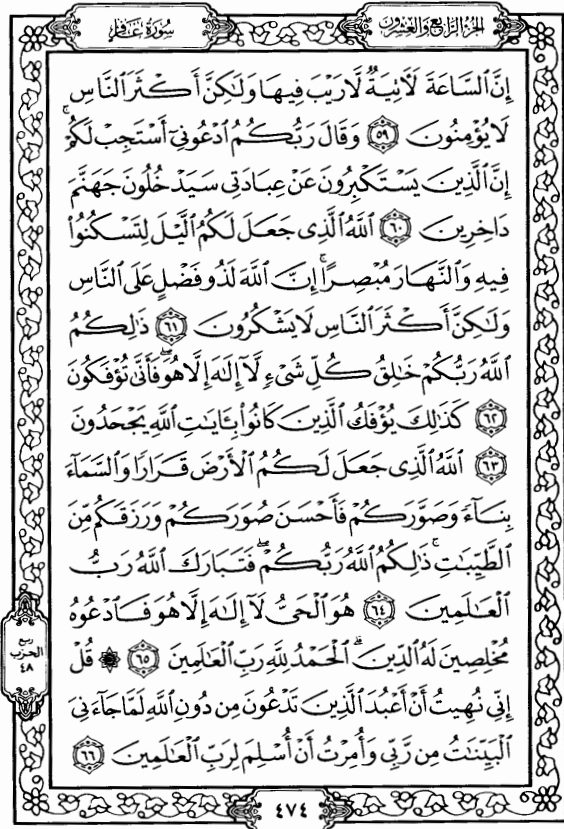 الجزء الرابع والعشرون
سورة غافر
إِنَّ ٱلسَّاعَةَ لَأٓتِيَةٌ لَّا رَيْبَ فِيهَا وَلَٰكِنَّ أَكْثَرَ ٱلنَّاسِ
لَا يُؤْمِنُونَ ٥٩ وَقَالَ رَبُّكُمُ ٱدْعُونِىٓ أَسْتَجِبْ لَكُمْ ۚ
إِنَّ ٱلَّذِينَ يَسْتَكْبِرُونَ عَنْ عِبَادَتِى سَيَدْخُلُونَ جَهَنَّمَ
دَاخِرِينَ ٦٠ ٱللَّهُ ٱلَّذِى جَعَلَ لَكُمُ ٱلَّيْلَ لِتَسْكُنُوا۟
فِيهِ وَٱلنَّهَارَ مُبْصِرًا ۚ إِنَّ ٱللَّهَ لَذُو فَضْلٍ عَلَى ٱلنَّاسِ
وَلَٰكِنَّ أَكْثَرَ ٱلنَّاسِ لَا يَشْكُرُونَ ٦١ ذَٰلِكُمُ
ٱللَّهُ رَبُّكُمْ خَٰلِقُ كُلِّ شَىْءٍ لَّآ إِلَٰهَ إِلَّا هُوَ ۖ فَأَنَّىٰ تُؤْفَكُونَ
٦٢ كَذَٰلِكَ يُؤْفَكُ ٱلَّذِينَ كَانُوا۟ بِـَٔايَٰتِ ٱللَّهِ يَجْحَدُونَ
٦٣ ٱللَّهُ ٱلَّذِى جَعَلَ لَكُمُ ٱلْأَرْضَ قَرَارًا وَٱلسَّمَآءَ
بِنَآءً وَصَوَّرَكُمْ فَأَحْسَنَ صُوَرَكُمْ وَرَزَقَكُم مِّنَ
ٱلطَّيِّبَٰتِ ۚ ذَٰلِكُمُ ٱللَّهُ رَبُّكُمْ ۖ فَتَبَارَكَ ٱللَّهُ رَبُّ
ٱلْعَٰلَمِينَ ٦٤ هُوَ ٱلْحَىُّ لَآ إِلَٰهَ إِلَّا هُوَ فَٱدْعُوهُ
مُخْلِصِينَ لَهُ ٱلدِّينَ ۗ ٱلْحَمْدُ لِلَّهِ رَبِّ ٱلْعَٰلَمِينَ ٦٥ ۞ قُلْ
إِنِّى نُهِيتُ أَنْ أَعْبُدَ ٱلَّذِينَ تَدْعُونَ مِن دُونِ ٱللَّهِ لَمَّا جَآءَنِىَ
ٱلْبَيِّنَٰتُ مِن رَّبِّى وَأُمِرْتُ أَنْ أُسْلِمَ لِرَبِّ ٱلْعَٰلَمِينَ ٦٦
ربع
الحزب
٤٨
٤٧٤